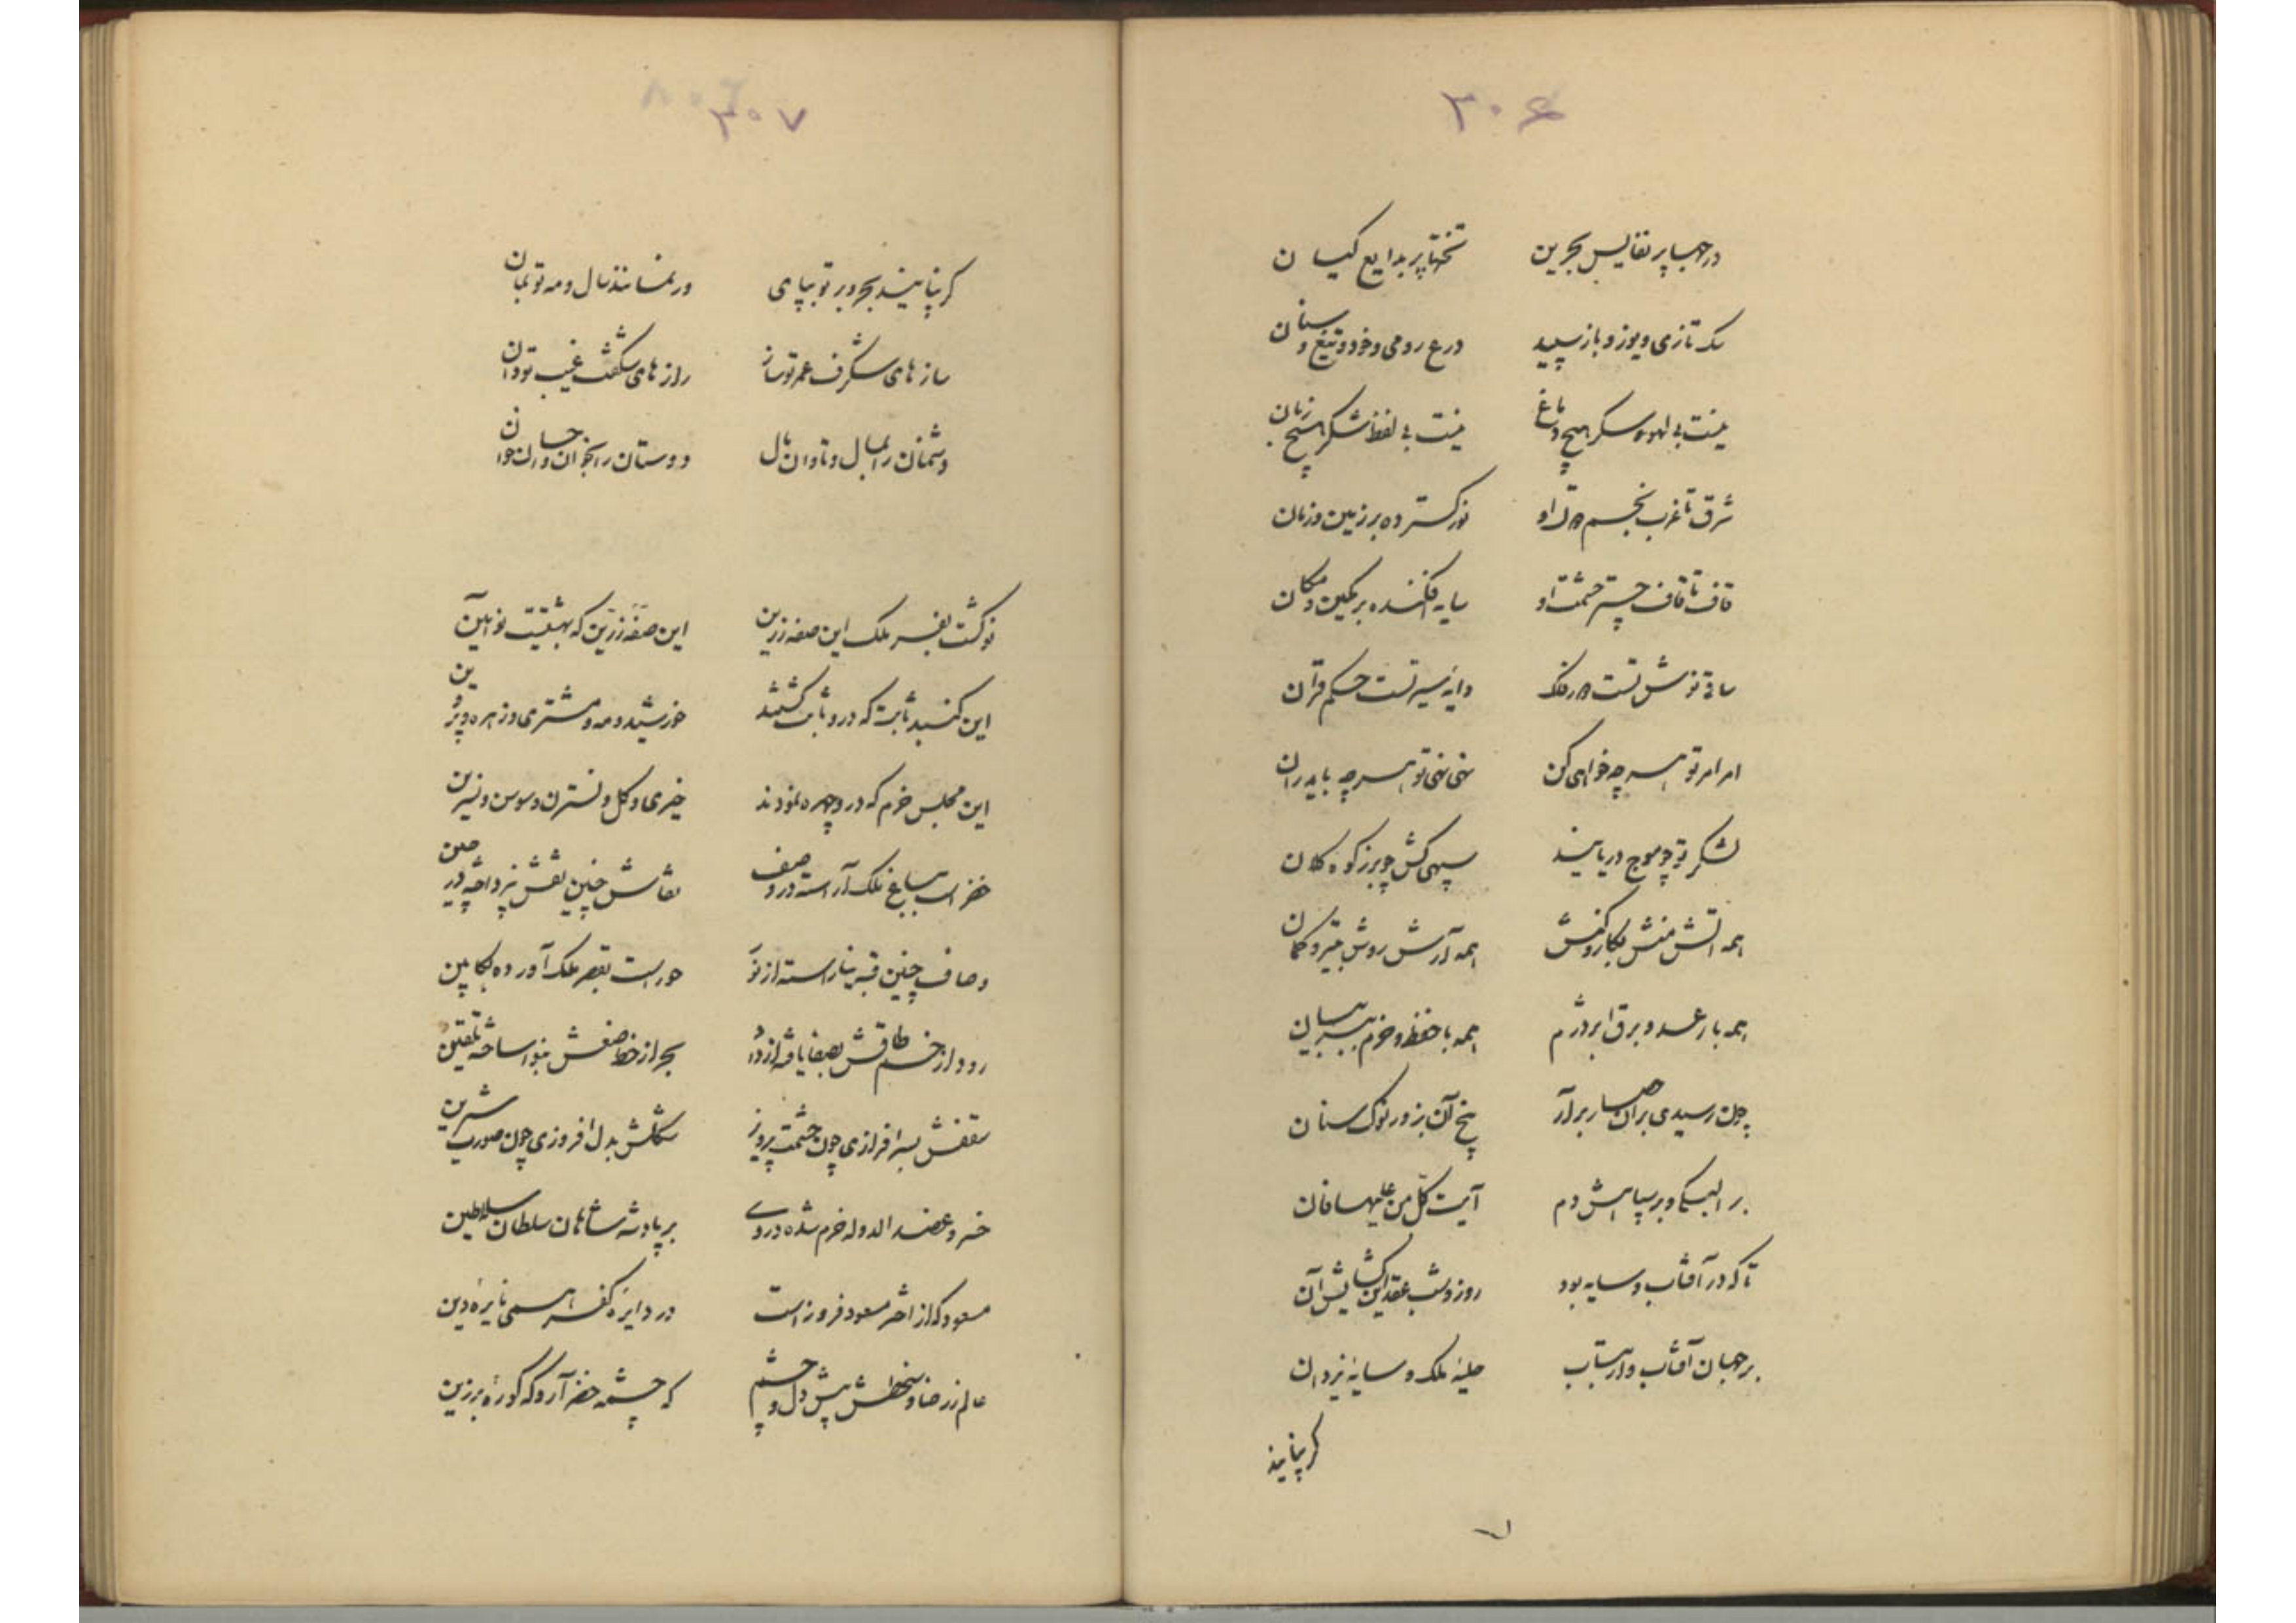 ۳۰۶
درجها پر نفایس بحرین تختها پر بدایع کیسان
سک تازی و یوز و باز سپید درع رومی و خود و تیغ و سنان
نیست بی لهو شکر هیچ دماغ نیست بی لفظ شکر هیچ زبان
شرق تا غرب نجم او نور کسترده بر زمین و زمان
قاف تا قاف چتر حشمت او سایه افکنده بر مکین و مکان
ساقی نوش تست فلک دایهٔ سیر تست حکم قران
امر امر تو هر چه خواهی کن نهی نهی تو هر چه باید ران
لشکر تو چو موج دریایند سپهی کش چو برز کوه کلان
همه آتش منش بکار و کنش همه آرش روش بتیر و کمان
همه با رعد و برق ابر دژم همه با حفظ و حزم ببر بیان
چون رسیدی بران حصار برآر بیخ آن بزور نوک سنان
بر البکا و بر سپاهش دم آیت کل من علیها فان
تا که در آفتاب و سایه بود روز و شب عقد این کشایش آن
بر جهان آفتاب وار بتاب حلیهٔ ملک و سایهٔ یزدان
کر بپایند
۳۰۷
کر بپایند بحر و بر تو بپای ور نمانند سال و مه تو بمان
سازهای شکرف عمر تو ساز رازهای شکفت غیب تو دان
دشمنان را بمال و تاوان مال دوستان را بخوان و
نو کشت بفر ملک این صفه زرین این صفهٔ زرین که بهشتیست نو آیین
این کنبد ثابت که درو ثابت کشتند خورشید و مه و مشتری و زهره و پروین
این مجلس خرم که درو چهره نمودند خیری و کل و نسترن و سوسن و نسرین
خضر است بباغ ملک آراسته در وصف نقاش چنین نقش نپرداخته در چین
وصاف چنین قبه نیاراسته از نو حور است بقصر ملک آورده بکابین
رود از خم طاقش بصفا یافته بحر از خط ساخته تلقین
سقفش بسر افرازی چون حشمت پرویز شکلش بدل افروزی چون صورت شیرین
خسرو عضد الدوله خرم شده در وی بر پادشه شاهان سلطان سلاطین
مسعود که از اختر مسعود فروز است در دایرهٔ کفر نایرهٔ دین
عالم ز رضا و سخطش پیش دل و چشم که چشمه خضر آرد و که کورهٔ برزین